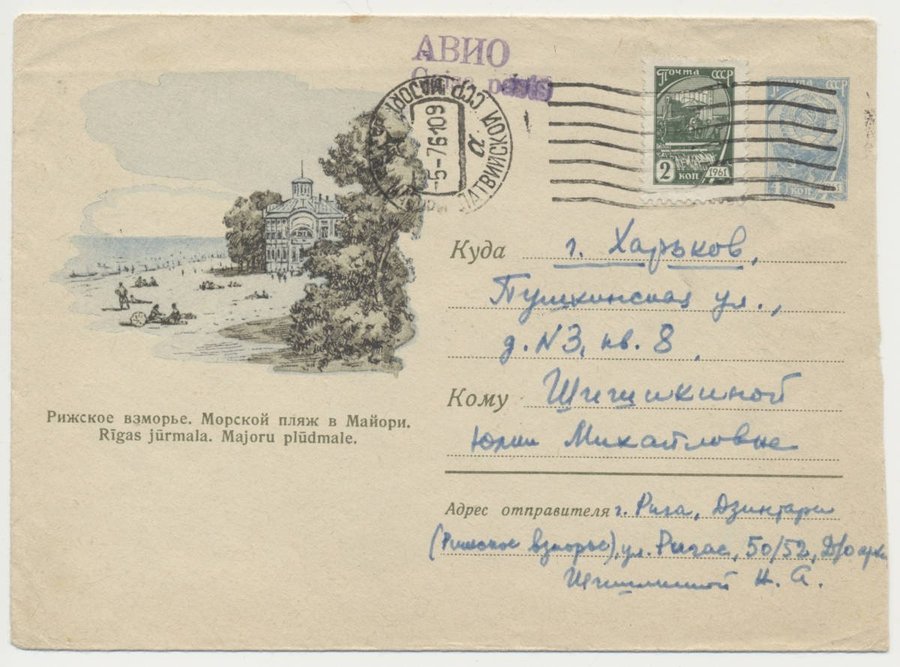 АВИО
Gaisa pasts
ЛАТВИЙСКОЙ ССР МАЙОРИ
5-7 61 09
а
Почта СССР
2 коп 1961
Почта СССР
коп
Куда г. Харьков,
Пушкинская ул.,
д. N3, кв. 8,
Кому Шишикиной
Юлии Михайловне
Рижское взморье. Морской пляж в Майори.
Rīgas jūrmala. Majoru plūdmale.
Адрес отправителя г. Рига, Дзинтари
(Рижское взморье), ул. Ригас, 50/52, Д/о
Н. А.